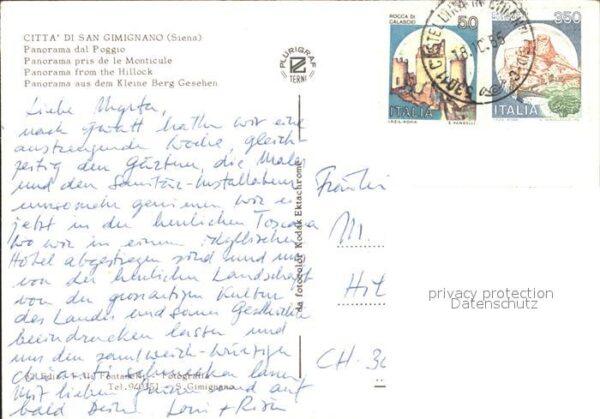 CITTA' DI SAN GIMIGNANO (Siena)
Panorama dal Poggio
Panorama pris de le Monticule
Panorama from the Hillock
Panorama aus dem Kleine Berg Gesehen
PLURIGRAF
TERNI
ROCCA DI CALASCIO
50
ITALIA
350
ITALIA
Liebe
nach hatten wir eine
anstrengende Woche, gleich-
zeitig den Gärtner, die Maler
und den Sanitär-Installateur
umsomehr geniessen wir es
jetzt in der herrlichen Toscana
wo wir in einem idyllischen
Hotel abgestiegen sind und uns
von der herrlichen Landschaft
von der grossartigen Kultur
des Landes und seiner Geschichte
beeindrucken lassen und
uns den
Chianti schmecken lassen
Mit lieben und auf
bald Deine
da fotocolor Kodak Ektachrome
Fotografia
Tel. S. Gimignano
Fräulein
M.
Hit
CH-36
privacy protection
Datenschutz